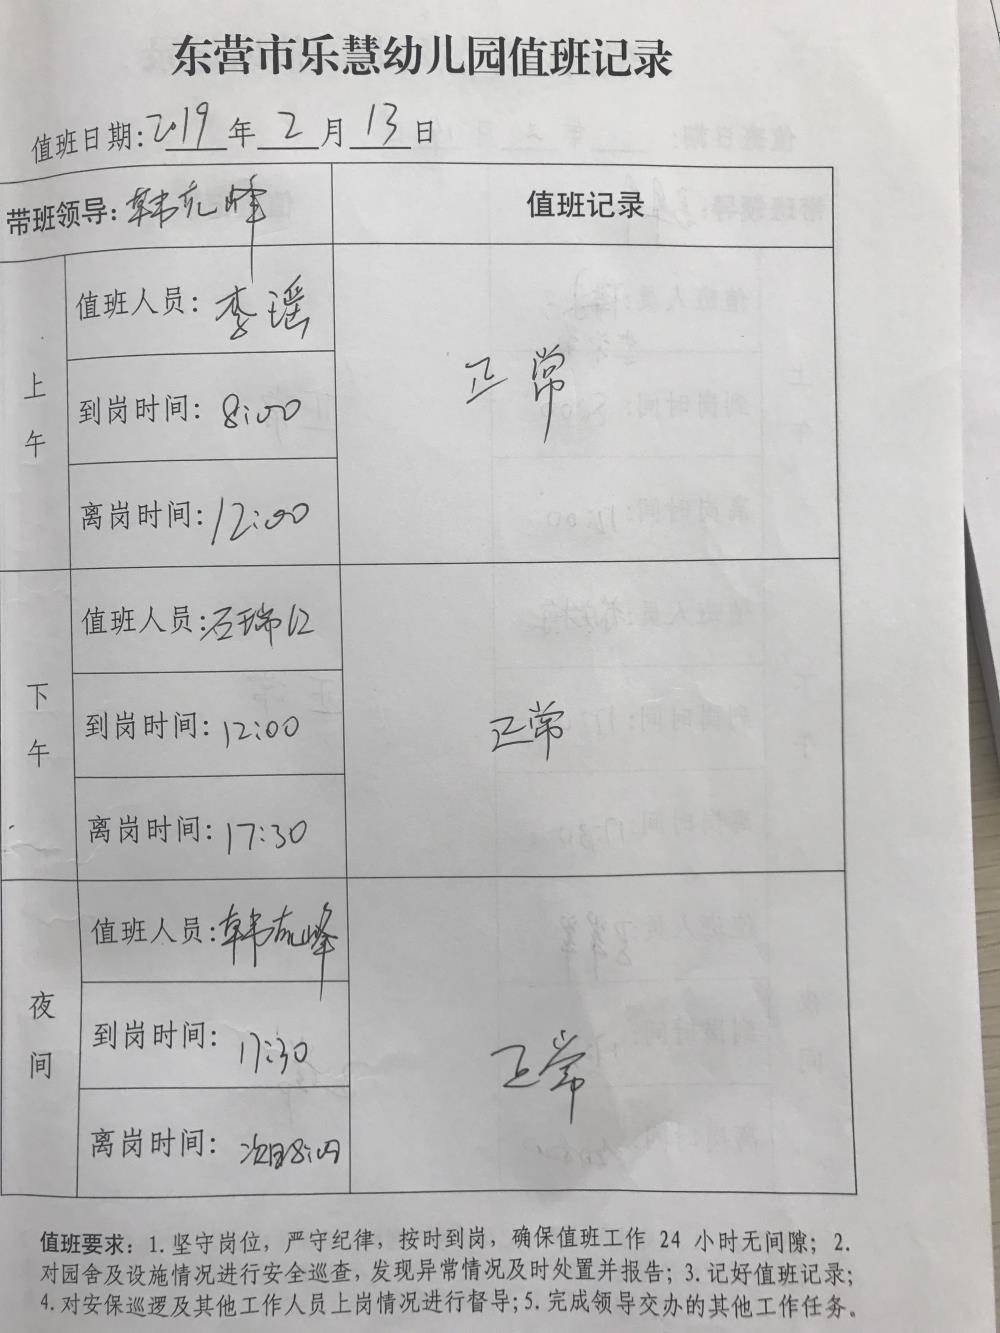 东营市乐慧幼儿园值班记录
值班日期:2019年2月13日
带班领导:韩克峰
值班记录
上午
值班人员:李瑶
到岗时间:8:00
离岗时间:12:00
正常
下午
值班人员:石瑞红
到岗时间:12:00
离岗时间:17:30
正常
夜间
值班人员:韩克峰
到岗时间:17:30
离岗时间:次日8:00
正常
值班要求:1.坚守岗位,严守纪律,按时到岗,确保值班工作 24 小时无间隙;2.
对园舍及设施情况进行安全巡查,发现异常情况及时处置并报告;3.记好值班记录;
4.对安保巡逻及其他工作人员上岗情况进行督导;5.完成领导交办的其他工作任务。